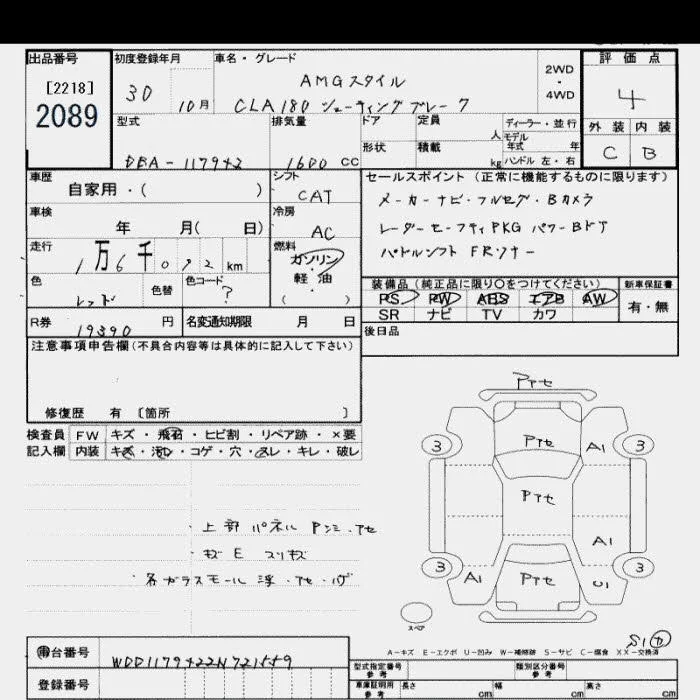 出品番号
[2218]
2089
初度登録年月
30 10月
車名・グレード
AMGスタイル
CLA180 シューティングブレーク
2WD
・
4WD
評価点
4
外装 内装
C B
型式
DBA-117942
排気量
1600 CC
ドア
形状
定員
人
積載
kg
ディーラー・並行
モデル
年式 年
ハンドル 左・右
車歴
自家用・( )
シフト
CAT
セールスポイント (正常に機能するものに限ります)
メーカーナビ・フルセグ・Bカメラ
レーダーセーフティPKG パワーBドア
パドルシフト FRソナー
車検
年 月( 日)
冷房
AC
走行
1万6千092km
燃料
ガソリン
・
軽油
( )
色
レッド
色替
色コード
?
装備品 (純正品に限り〇をつけてください)
PS PW ABS エアB AW
SR ナビ TV カワ
新車保証書
有・無
R券
19390 円
名変通知期限 月 日
後日品
注意事項申告欄(不具合内容等は具体的に記入して下さい)
修復歴 有 〔箇所 〕
検査員
記入欄
FW キズ・飛石・ヒビ割・リペア跡・×要
内装 キズ・汚れ・コゲ・穴・スレ・キレ・破レ
・上部パネル Pンミ・アセ
・キズ E スリキズ
・各ガラスモール浮・アセ・ハゲ
Pアセ
3 Pアセ A1 3
Pアセ
A1
3 A1 Pアセ U1 3
スペア
S1
A-キズ E-エクボ U-凹み W-補修跡 S-サビ C-腐食 XX-交換済
車台番号
WDD1179422N721559
登録番号
型式指定番号
参考
類別区分番号
参考
車庫証明用
参考
長さ cm 幅 cm 高さ cm